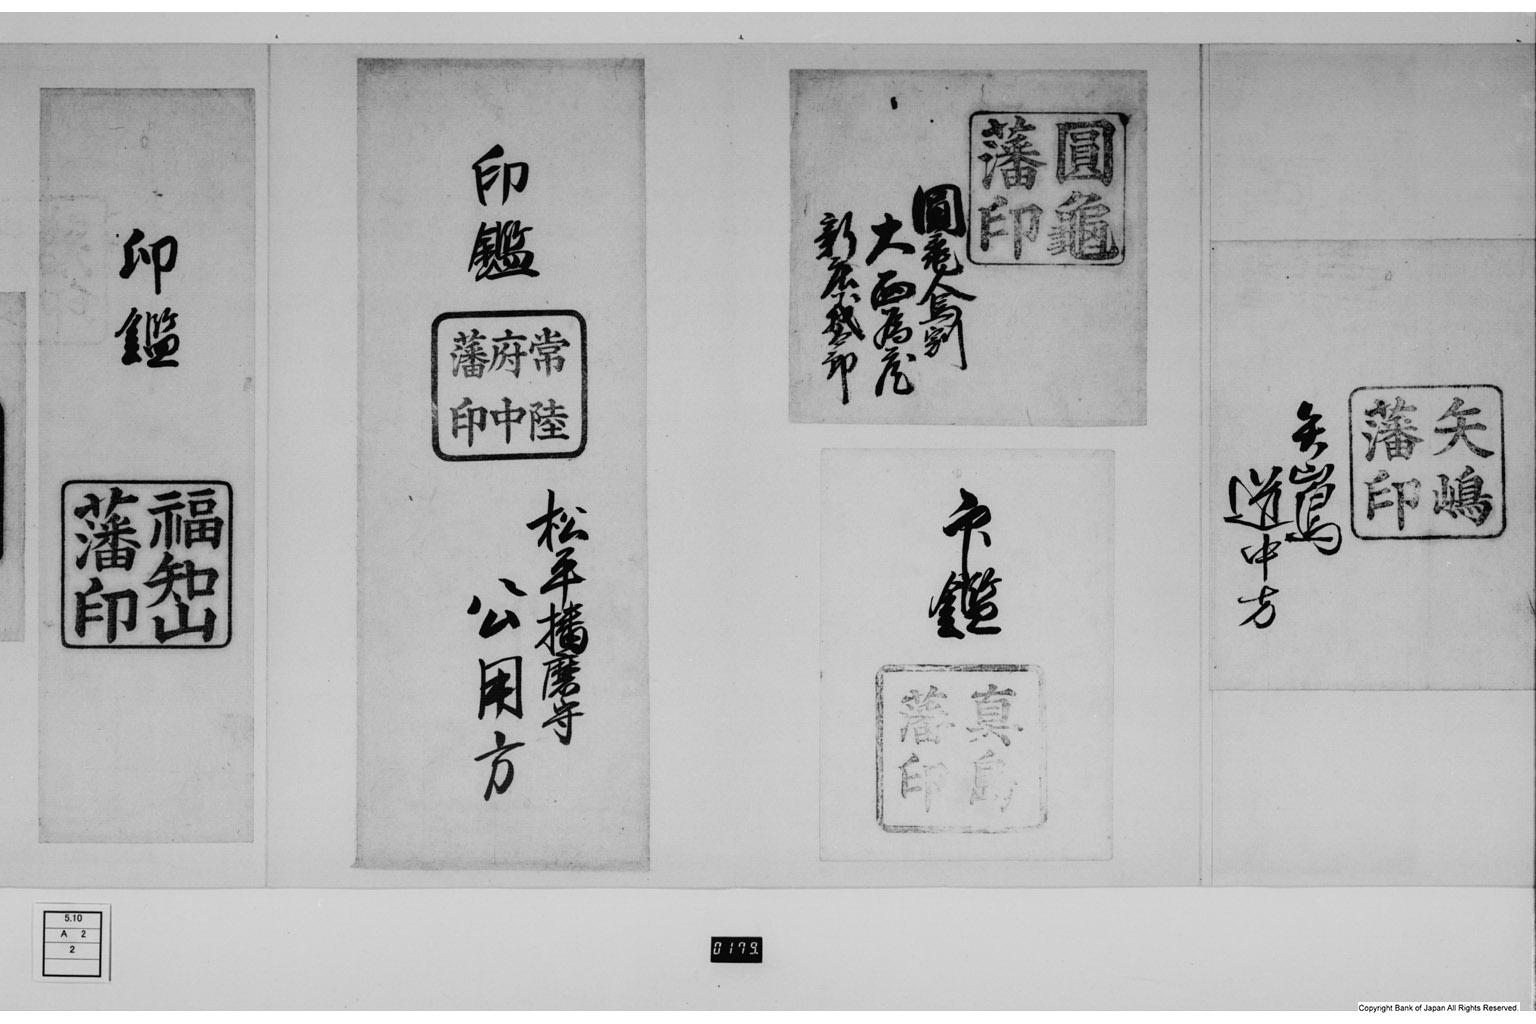 矢嶋
藩印
矢嶋
道中方
圓龜
藩印
圓龜
大西
新庄
印鑑
真島
藩印
印鑑
常陸
府中
藩印
松平播磨守
公用方
印鑑
福知山
藩印
5.10
A 2
2
0179
Copyright Bank of Japan All Rights Reserved.